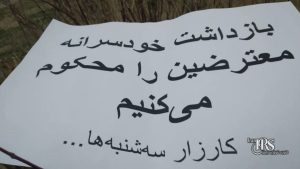 بازداشت خودسرانه
معترضین را محکوم
می‌کنیم
کارزار سه‌شنبه‌ها...